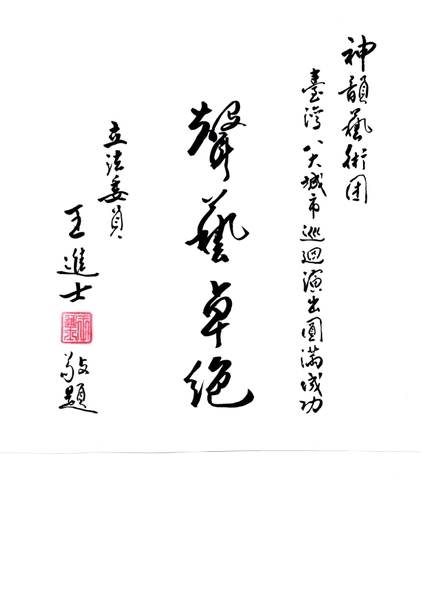 神韻藝術团
臺灣八大城市巡迴演出圓滿成功
聲藝卓絕
立法委員
王進士
敬題